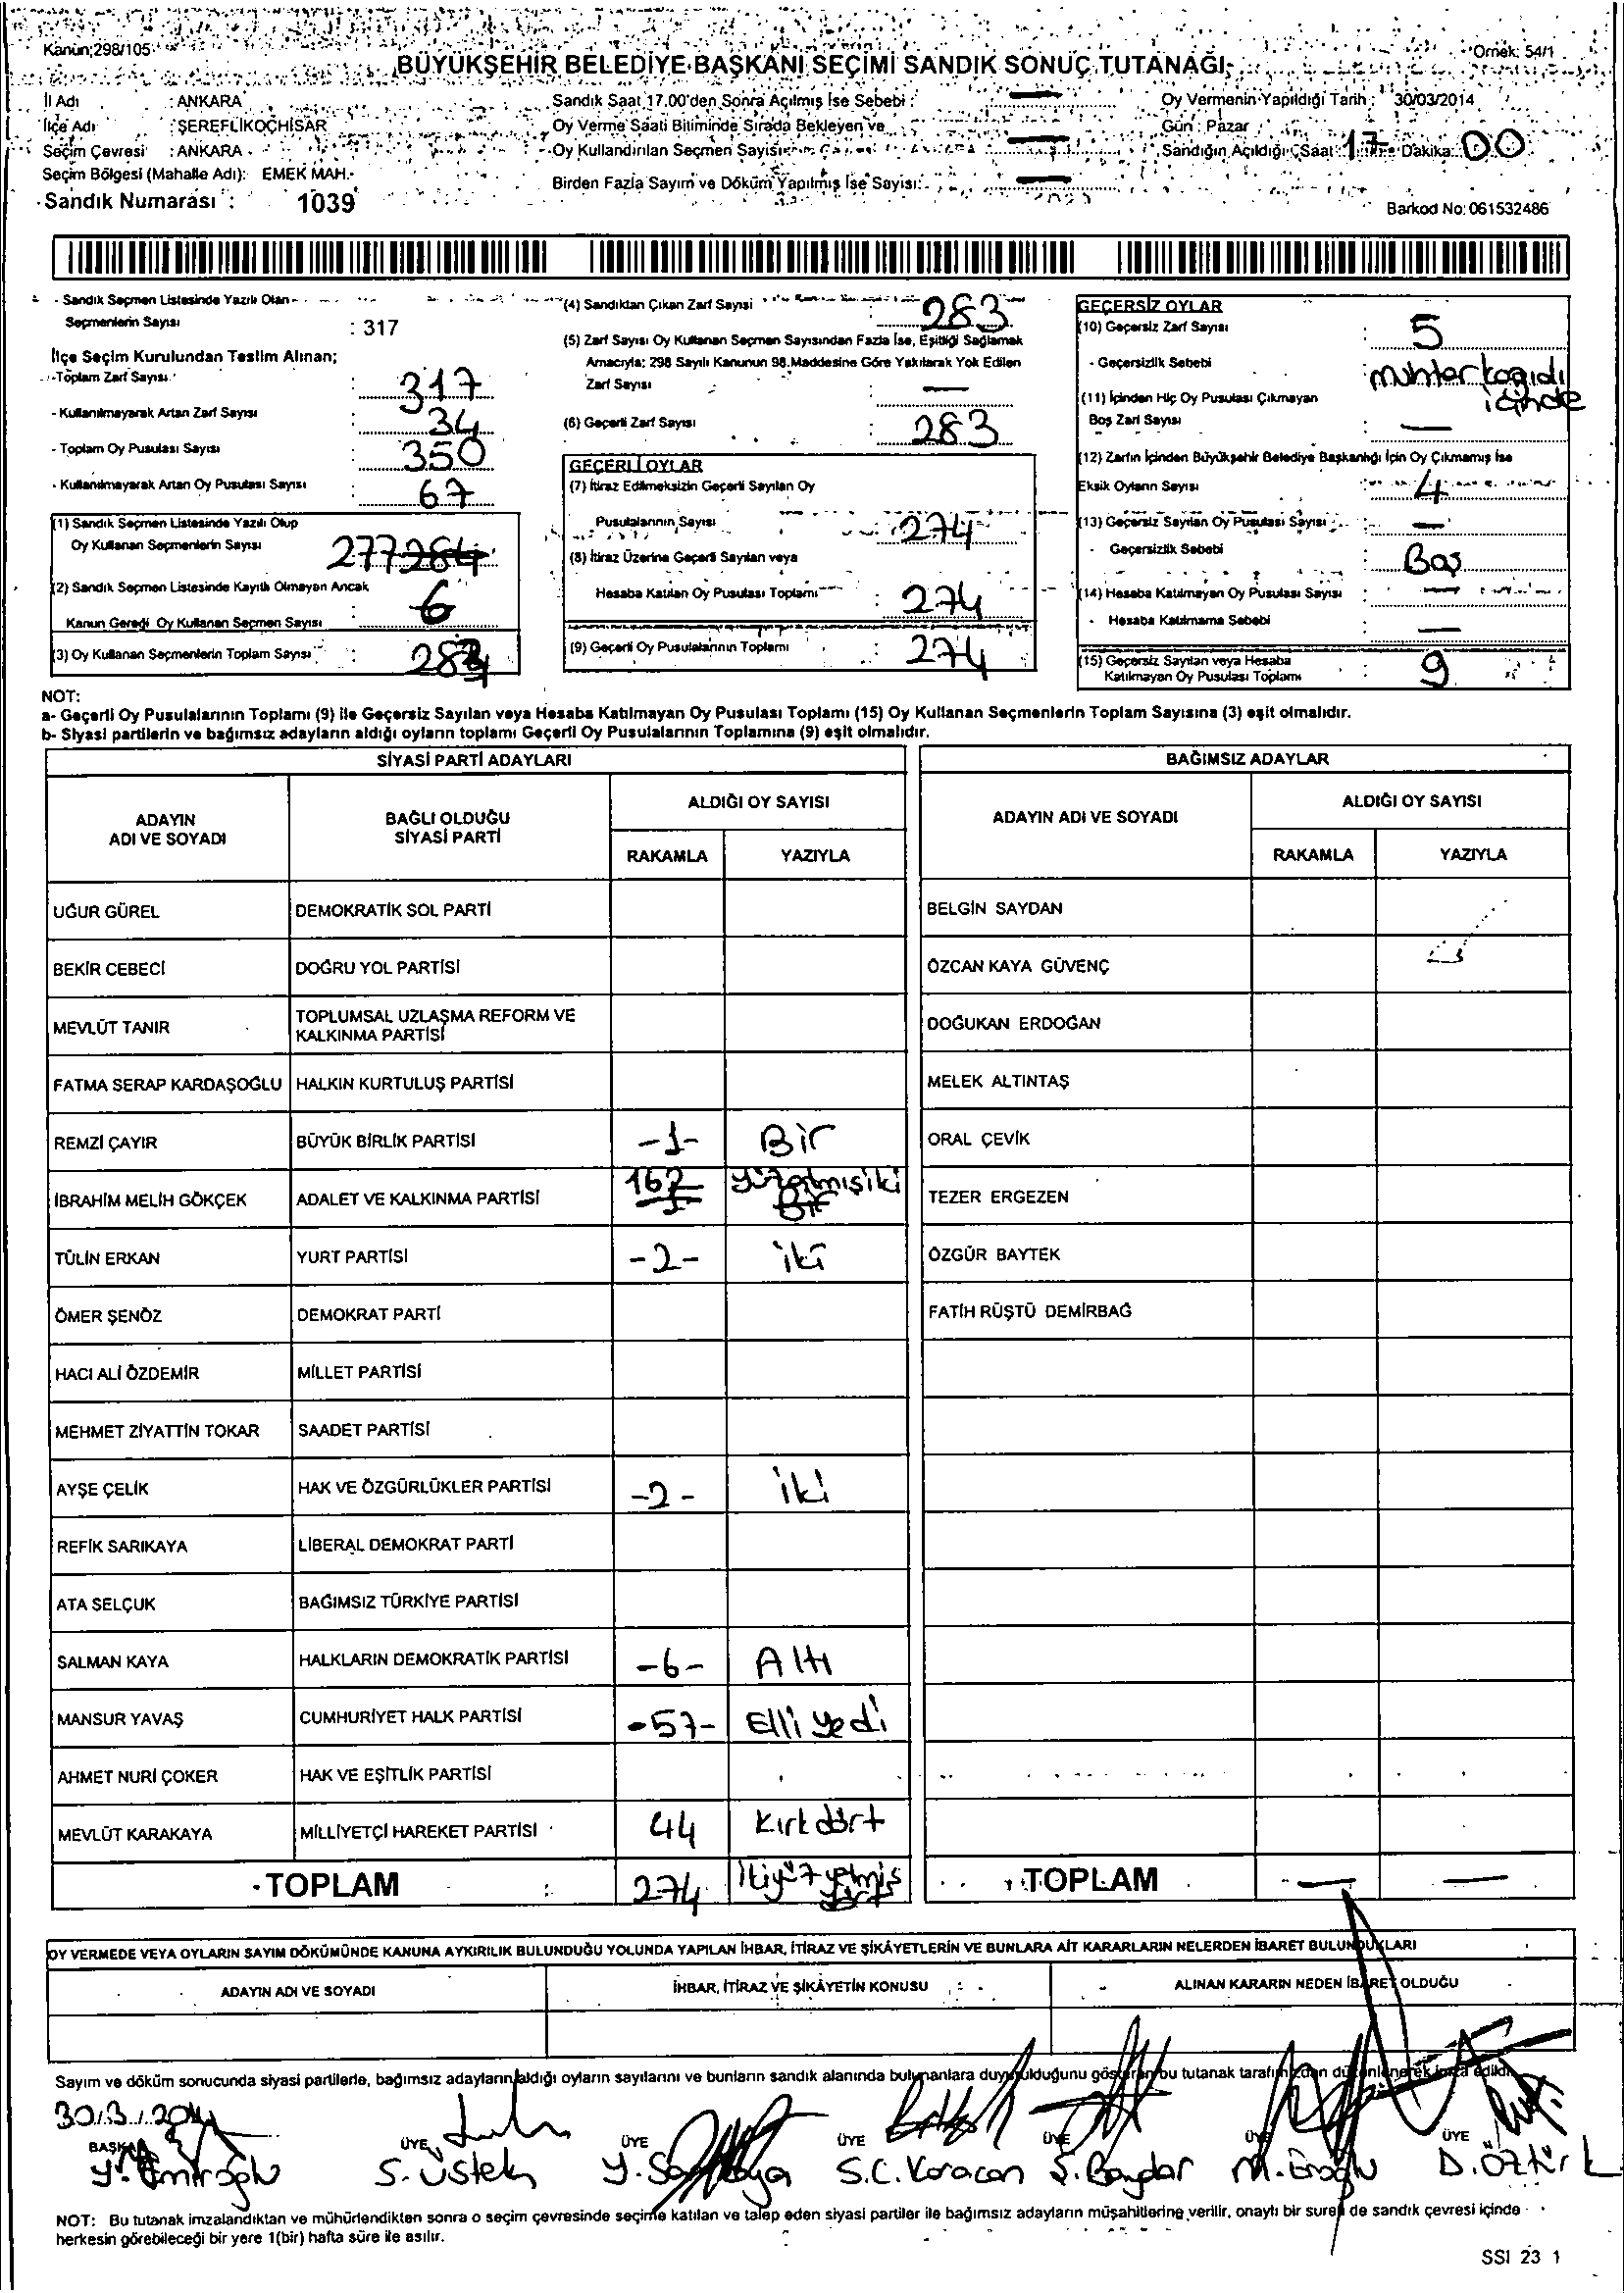 Kanun;298/105
Örnek: 54/1
BÜYÜKŞEHİR BELEDİYE BAŞKANI SEÇİMİ SANDIK SONUÇ TUTANAĞI
İl Adı : ANKARA
İlçe Adı : ŞEREFLİKOÇHİSAR
Seçim Çevresi : ANKARA
Seçim Bölgesi (Mahalle Adı): EMEK MAH.
Sandık Numarası : 1039
Sandık Saat 17.00'den Sonra Açılmış İse Sebebi : —
Oy Verme Saati Bitiminde Sırada Bekleyen ve
Oy Kullandırılan Seçmen Sayısı: —
Birden Fazla Sayım ve Döküm Yapılmış İse Sayısı: —
Oy Vermenin Yapıldığı Tarih : 30/03/2014
Gün : Pazar
Sandığın Açıldığı (Saat : 17 Dakika: 00
Barkod No: 061532486
- Sandık Seçmen Listesinde Yazılı Olan
Seçmenlerin Sayısı : 317
İlçe Seçim Kurulundan Teslim Alınan;
-Toplam Zarf Sayısı : 317
- Kullanılmayarak Artan Zarf Sayısı : 34
- Toplam Oy Pusulası Sayısı : 350
- Kullanılmayarak Artan Oy Pusulası Sayısı : 67
(1) Sandık Seçmen Listesinde Yazılı Olup
Oy Kullanan Seçmenlerin Sayısı 277 284
(2) Sandık Seçmen Listesinde Kayıtlı Olmayan Ancak
Kanun Gereği Oy Kullanan Seçmen Sayısı : 6
(3) Oy Kullanan Seçmenlerin Toplam Sayısı : 283
(4) Sandıktan Çıkan Zarf Sayısı : 283
(5) Zarf Sayısı Oy Kullanan Seçmen Sayısından Fazla İse, Eşitliği Sağlamak
Amacıyla; 298 Sayılı Kanunun 98.Maddesine Göre Yakılarak Yok Edilen
Zarf Sayısı : —
(6) Geçerli Zarf Sayısı : 283
GEÇERLİ OYLAR
(7) İtiraz Edilmeksizin Geçerli Sayılan Oy
Pusulalarının Sayısı : 274
(8) İtiraz Üzerine Geçerli Sayılan veya
Hesaba Katılan Oy Pusulası Toplamı : 274
(9) Geçerli Oy Pusulalarının Toplamı : 274
GEÇERSİZ OYLAR
(10) Geçersiz Zarf Sayısı : 5
- Geçersizlik Sebebi : muhtar kağıdı içinde
(11) İçinden Hiç Oy Pusulası Çıkmayan
Boş Zarf Sayısı : —
(12) Zarfın İçinden Büyükşehir Belediye Başkanlığı İçin Oy Çıkmamış İse
Eksik Oyların Sayısı : 4
(13) Geçersiz Sayılan Oy Pusulası Sayısı : —
- Geçersizlik Sebebi : Boş
(14) Hesaba Katılmayan Oy Pusulası Sayısı : —
- Hesaba Katılmama Sebebi : —
(15) Geçersiz Sayılan veya Hesaba
Katılmayan Oy Pusulası Toplamı : 9
NOT:
a- Geçerli Oy Pusulalarının Toplamı (9) ile Geçersiz Sayılan veya Hesaba Katılmayan Oy Pusulası Toplamı (15) Oy Kullanan Seçmenlerin Toplam Sayısına (3) eşit olmalıdır.
b- Siyasi partilerin ve bağımsız adayların aldığı oyların toplamı Geçerli Oy Pusulalarının Toplamına (9) eşit olmalıdır.
SİYASİ PARTİ ADAYLARI
ADAYIN ADI VE SOYADI
BAĞLI OLDUĞU SİYASİ PARTİ
ALDIĞI OY SAYISI
RAKAMLA YAZIYLA
UĞUR GÜREL DEMOKRATİK SOL PARTİ
BEKİR CEBECİ DOĞRU YOL PARTİSİ
MEVLÜT TANIR TOPLUMSAL UZLAŞMA REFORM VE KALKINMA PARTİSİ
FATMA SERAP KARDAŞOĞLU HALKIN KURTULUŞ PARTİSİ
REMZİ ÇAYIR BÜYÜK BİRLİK PARTİSİ -1- Bir
İBRAHİM MELİH GÖKÇEK ADALET VE KALKINMA PARTİSİ 162 yüzatmışiki
TÜLİN ERKAN YURT PARTİSİ -2- iki
ÖMER ŞENÖZ DEMOKRAT PARTİ
HACI ALİ ÖZDEMİR MİLLET PARTİSİ
MEHMET ZİYATTİN TOKAR SAADET PARTİSİ
AYŞE ÇELİK HAK VE ÖZGÜRLÜKLER PARTİSİ -2- iki
REFİK SARIKAYA LİBERAL DEMOKRAT PARTİ
ATA SELÇUK BAĞIMSIZ TÜRKİYE PARTİSİ
SALMAN KAYA HALKLARIN DEMOKRATİK PARTİSİ -6- Altı
MANSUR YAVAŞ CUMHURİYET HALK PARTİSİ -57- Elli yedi
AHMET NURİ ÇOKER HAK VE EŞİTLİK PARTİSİ
MEVLÜT KARAKAYA MİLLİYETÇİ HAREKET PARTİSİ 44 Kırk dört
TOPLAM : 274 ikiyüz yetmiş dört
BAĞIMSIZ ADAYLAR
ADAYIN ADI VE SOYADI
ALDIĞI OY SAYISI
RAKAMLA YAZIYLA
BELGİN SAYDAN
ÖZCAN KAYA GÜVENÇ
DOĞUKAN ERDOĞAN
MELEK ALTINTAŞ
ORAL ÇEVİK
TEZER ERGEZEN
ÖZGÜR BAYTEK
FATİH RÜŞTÜ DEMİRBAĞ
TOPLAM — —
OY VERMEDE VEYA OYLARIN SAYIM DÖKÜMÜNDE KANUNA AYKIRILIK BULUNDUĞU YOLUNDA YAPILAN İHBAR, İTİRAZ VE ŞİKÂYETLERİN VE BUNLARA AİT KARARLARIN NELERDEN İBARET BULUNDUKLARI
ADAYIN ADI VE SOYADI
İHBAR, İTİRAZ VE ŞİKÂYETİN KONUSU
ALINAN KARARIN NEDEN İBARET OLDUĞU
Sayım ve döküm sonucunda siyasi partilerle, bağımsız adayların aldığı oyların sayılarını ve bunların sandık alanında bulunanlara duyurulduğunu gösteren bu tutanak tarafımızdan düzenlenerek imza edildi.
30/3/2014
BAŞKAN ÜYE ÜYE ÜYE ÜYE ÜYE ÜYE
Y. Emiroğlu S. Üstek S.C. Karacan Ş. Baydar M. Eroğlu D. Öztürk
NOT: Bu tutanak imzalandıktan ve mühürlendikten sonra o seçim çevresinde seçime katılan ve talep eden siyasi partiler ile bağımsız adayların müşahitlerine verilir, onaylı bir sureti de sandık çevresi içinde
herkesin görebileceği bir yere 1(bir) hafta süre ile asılır.
SSI 23 1